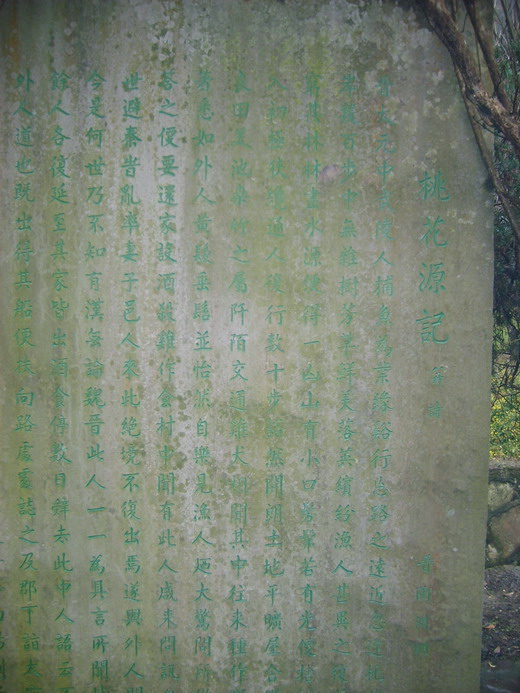 桃花源記 并詩
晉太元中武陵人捕魚為業緣谿行忘路之遠近忽逢桃
岸數百步中無雜樹芳草鮮美落英繽紛漁人甚異之復
窮其林林盡水源便得一山山有小口髣髴若有光便捨
入初極狹纔通人復行數十步豁然開朗土地平曠屋舍
良田美池桑竹之屬阡陌交通雞犬相聞其中往來種作
著悉如外人黃髮垂髫並怡然自樂見漁人廼大驚問所
答之便要還家設酒殺雞作食村中聞有此人咸來問訊
世避秦旹亂率妻子邑人來此絕境不復出焉遂與外人間
今是何世乃不知有漢無論魏晉此人一一為具言所聞
餘人各復延至其家皆出酒食停數日辭去此中人語云
外人道也既出得其船便扶向路處處誌之及郡下詣太